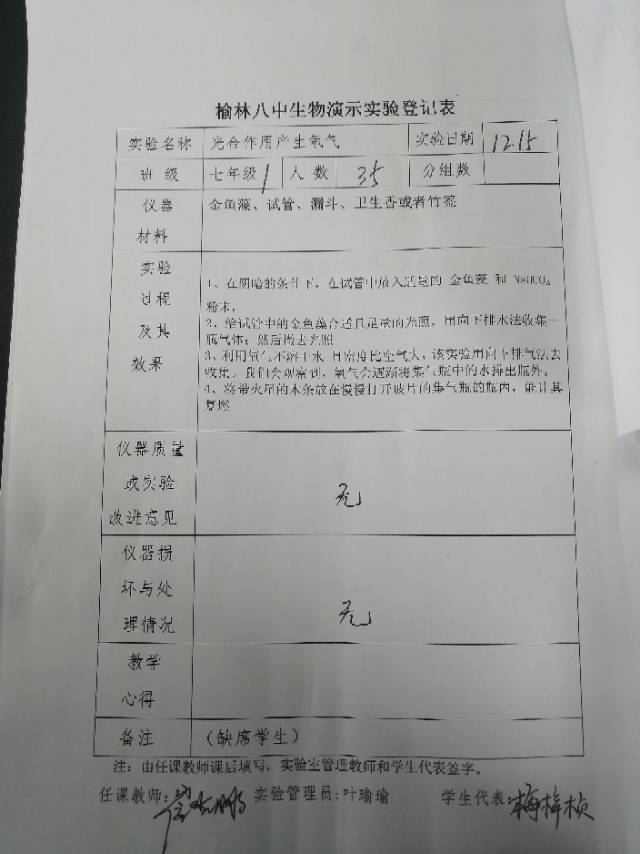 榆林八中生物演示实验登记表
实验名称 光合作用产生氧气 实验日期 12.15
班 级 七年级1 人 数 35 分组数
仪器 金鱼藻、试管、漏斗、卫生香或者竹签
材料
实验
过程
及其
效果
1、在阴暗的条件下，在试管中放入适量的 金鱼藻 和 NaHCO₃
粉末。
2、给试管中的金鱼藻合适且足量的光照，用向下排水法收集一
瓶气体；然后撤去光照
3、利用氧气不溶于水 且密度比空气大，该实验用向下排气法去
收集。我们会观察到，氧气会逐渐将集气瓶中的水排出瓶外。
4、将带火星的木条放在慢慢打开玻片的集气瓶的瓶内，能让其
复燃
仪器质量
或实验
改进意见
无
仪器损
坏与处
理情况
无
教学
心得
备注 （缺席学生）
注：由任课教师课后填写，实验室管理教师和学生代表签字。
任课教师： 实验管理员：叶瑜瑜 学生代表：梅梓桢